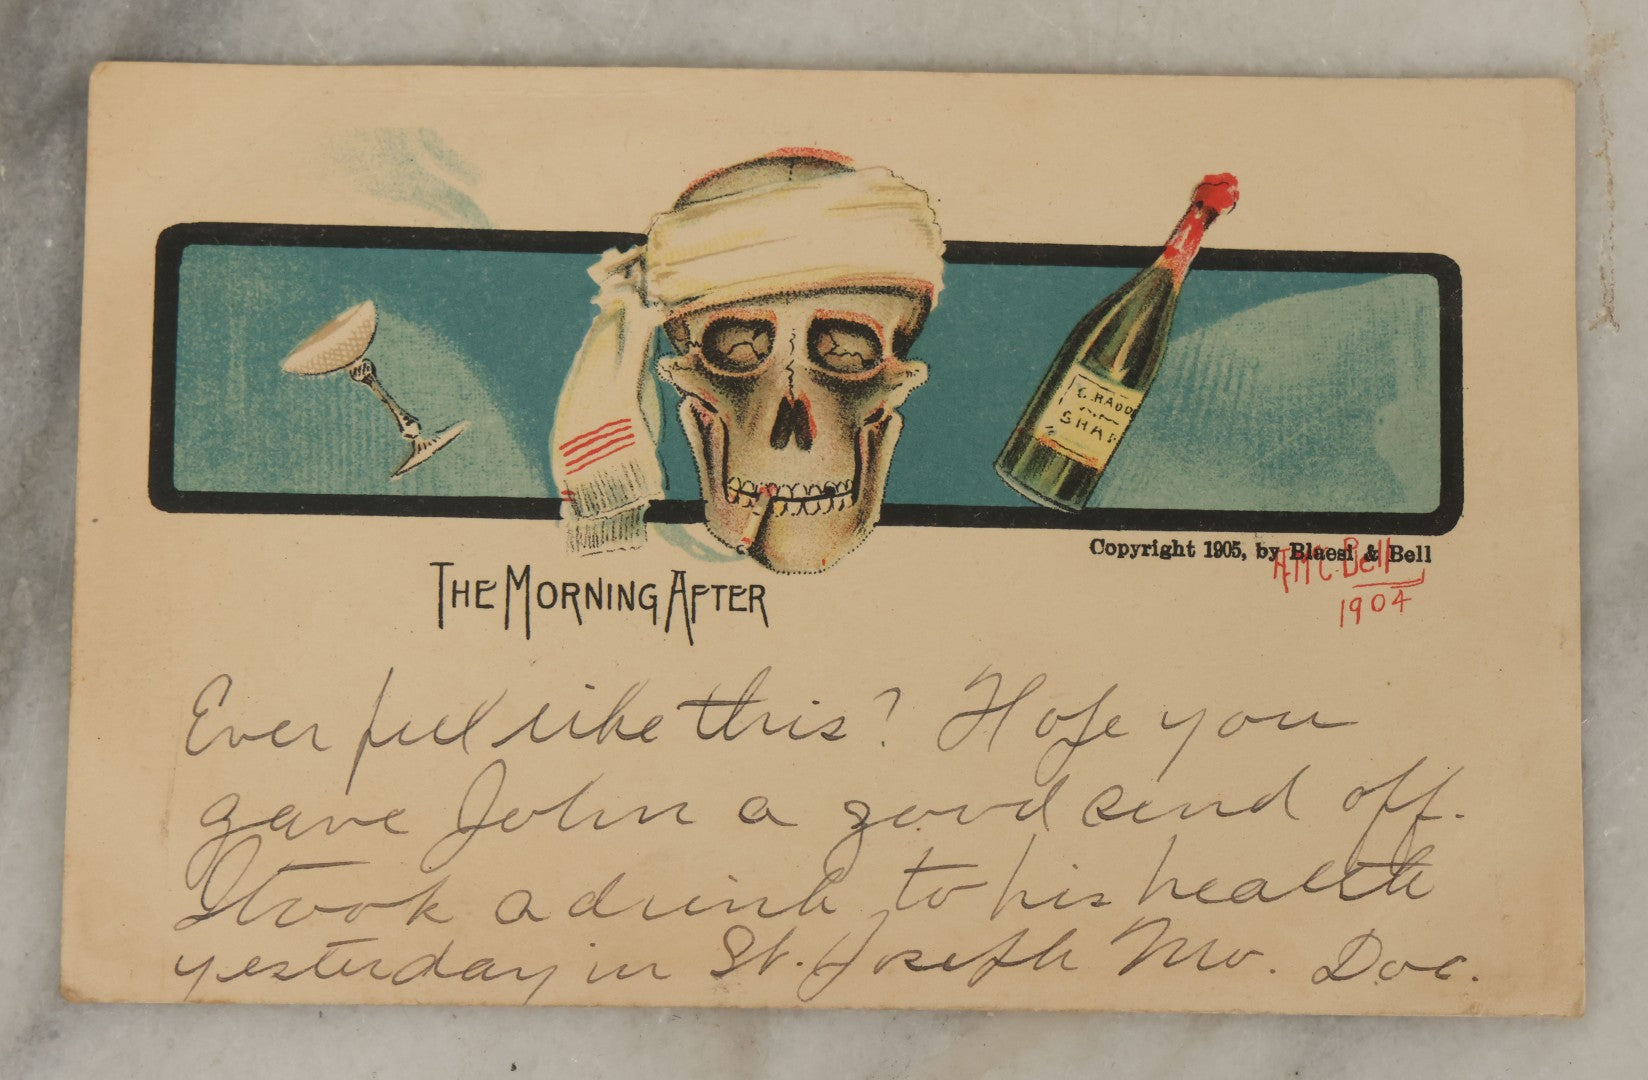 G. RADD
SHAP
Copyright 1905, by Blaesi & Bell
A MC Bell
1904
THE MORNING AFTER
Ever feel like this? Hope you
gave John a good send off.
I took a drink to his health
yesterday in St. Joseph Mo. Doc.